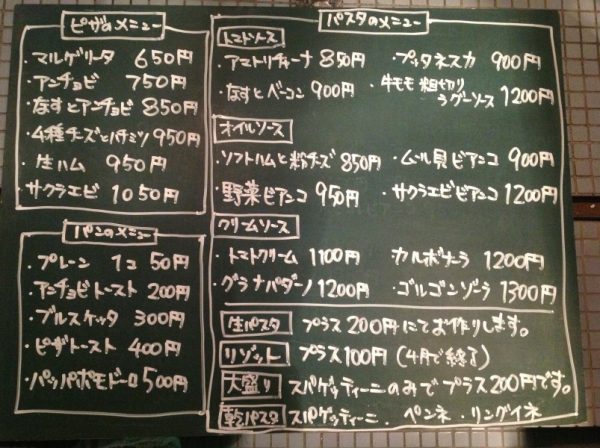 ピザのメニュー
・マルゲリータ 650円
・アンチョビ 750円
・なすとアンチョビ 850円
・4種チーズとハチミツ 950円
・生ハム 950円
・サクラエビ 1050円
パンのメニュー
・プレーン 1コ 50円
・アンチョビトースト 200円
・ブルスケッタ 300円
・ピザトースト 400円
・パッパポモドーロ 500円
パスタのメニュー
トマトソース
・アマトリチャーナ 850円 ・プッタネスカ 900円
・なすとベーコン 900円 ・牛モモ粗切り
ラグーソース 1200円
オイルソース
・ソフトハムと粉チーズ 850円 ・ムール貝ビアンコ 900円
・野菜ビアンコ 950円 ・サクラエビビアンコ 1200円
クリームソース
・トマトクリーム 1100円 ・カルボナーラ 1200円
・グラナパダーノ 1200円 ・ゴルゴンゾーラ 1300円
生パスタ プラス200円にてお作りします。
リゾット プラス100円 (4月で終了)
大盛り スパゲッティーニのみでプラス200円です。
乾パスタ スパゲッティーニ・ペンネ・リングイネ